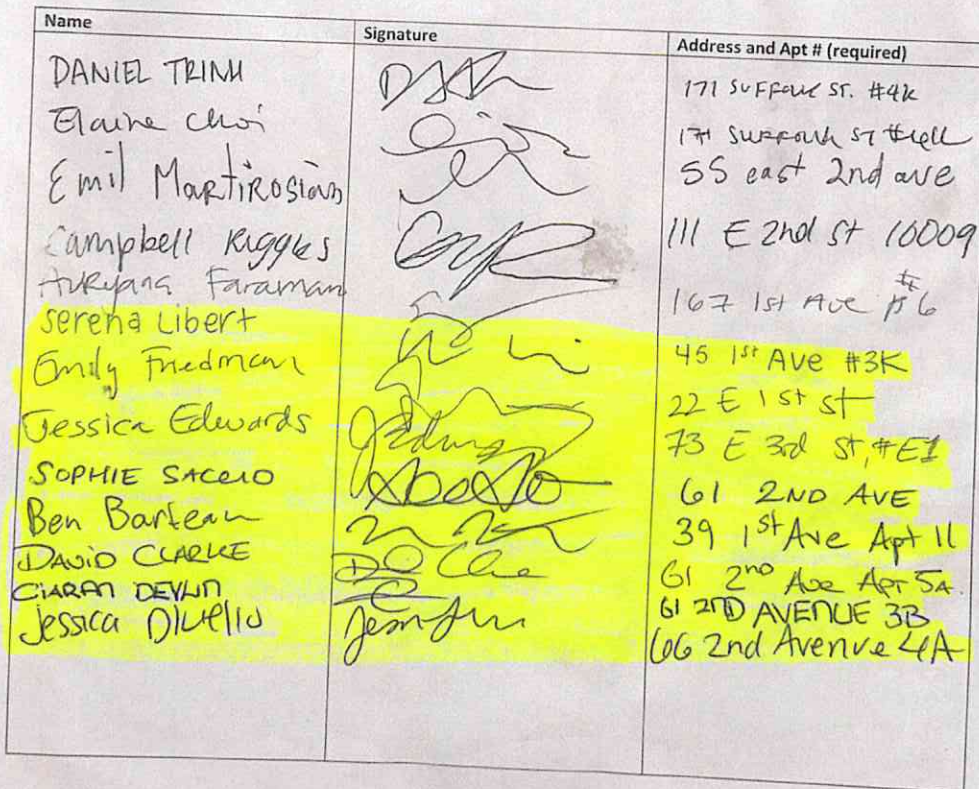 Name Signature Address and Apt # (required)
DANIEL TRINH 171 SUFFOLK ST. #4K
Elaine Choi 171 SUFFOLK ST
Emil Martirosian 55 east 2nd ave
Campbell Riggles 111 E 2nd St 10009
Faraman 167 1st Ave # 6
Serena Libert 45 1st Ave #3K
Emily Friedman 22 E 1st St
Jessica Edwards 73 E 3rd St, #E1
SOPHIE 61 2ND AVE
Ben Barteau 39 1st Ave Apt 11
DAVID CLARKE 61 2nd Ave Apt 5A
CIARAN DEVLIN 61 2ND AVENUE 3B
Jessica 66 2nd Avenue 4A